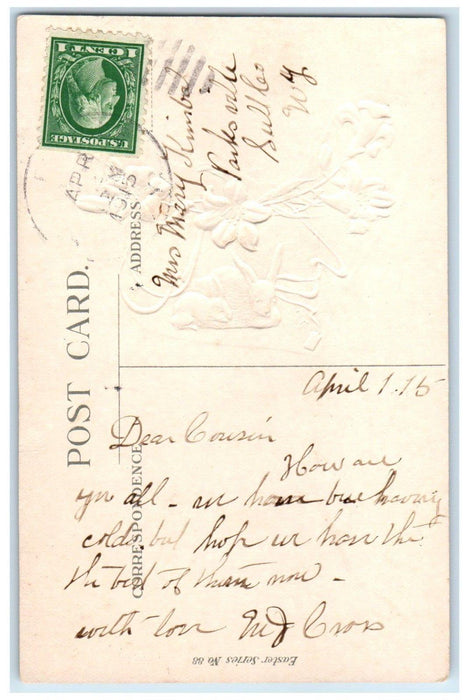 U.S. POSTAGE
1 CENT 1
APR
1915
POST CARD.
ADDRESS
CORRESPONDENCE
Mrs Mary Kimball
Parksville
Sull Co
N Y
April 1. 15
Dear Cousin
How are
you all - we have been having
colds but hope we have the
the best of them now -
with love M J Cross
Easter Series No 88